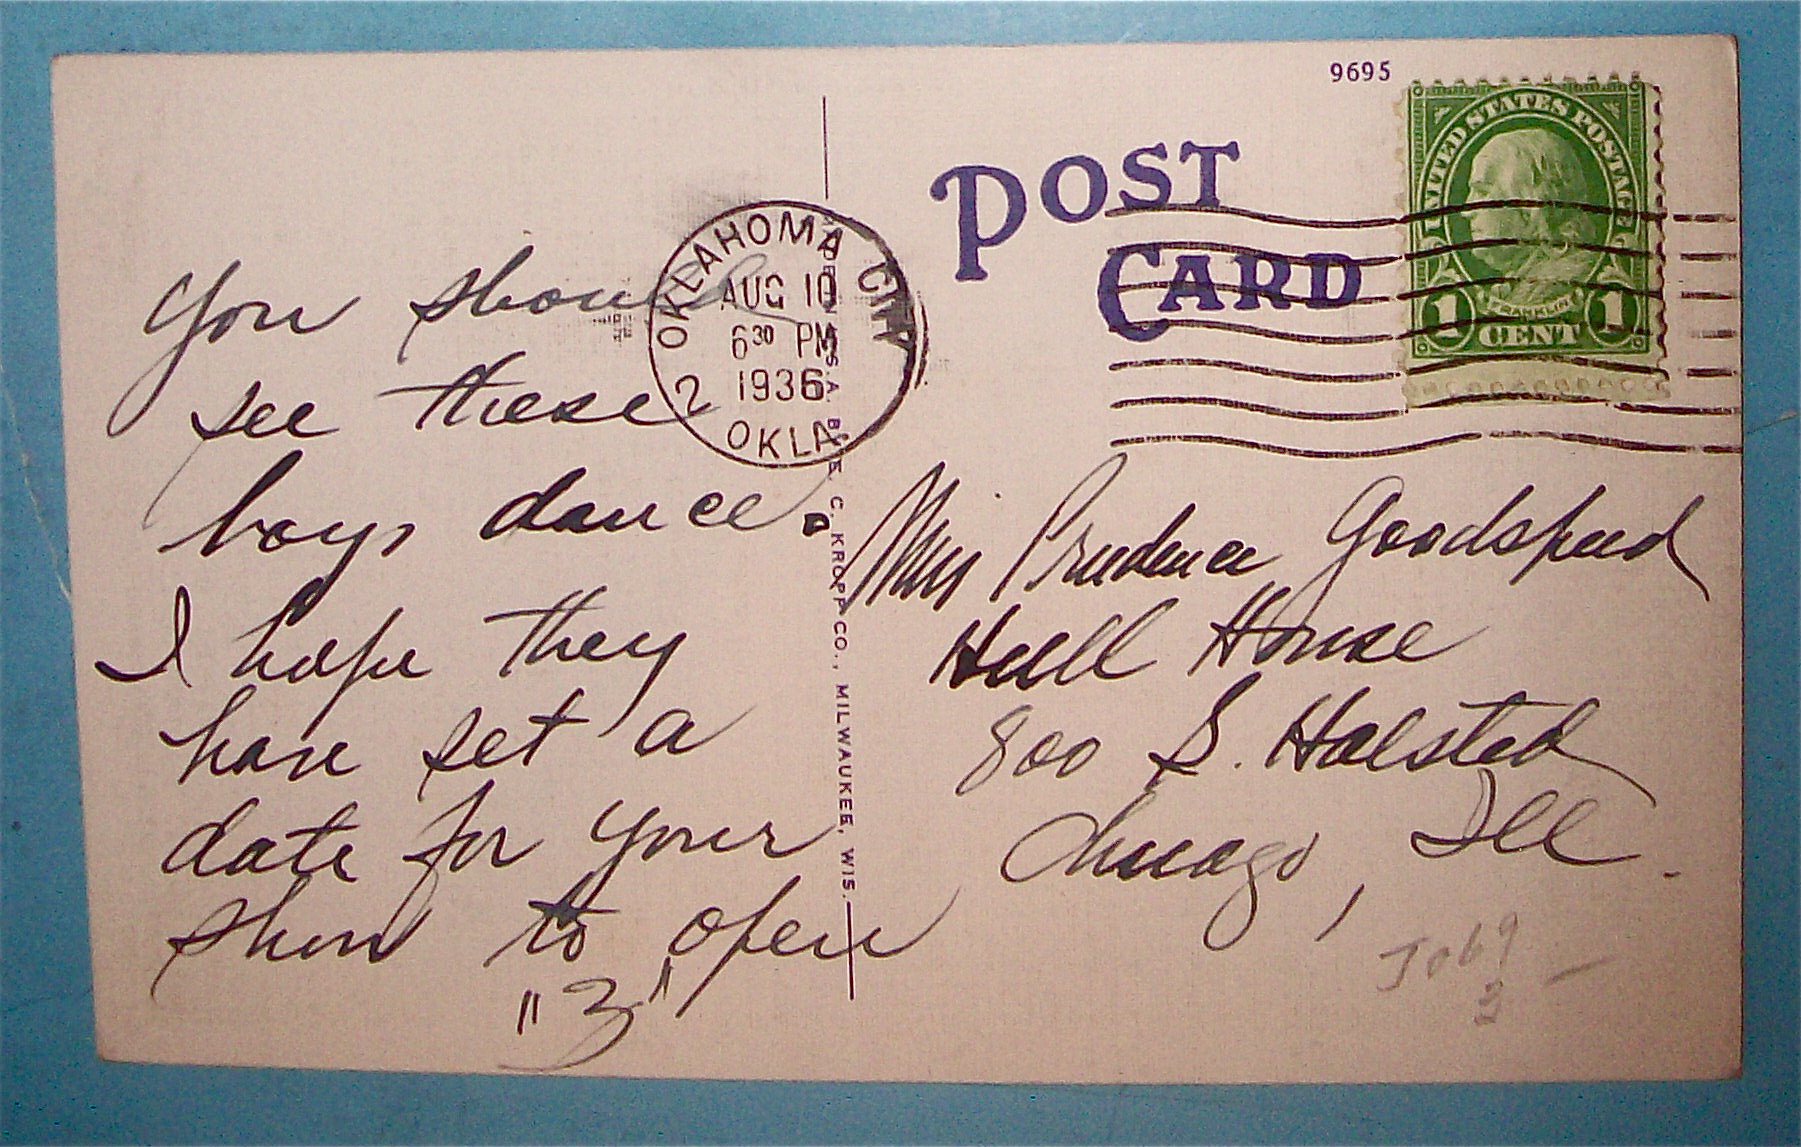 9695
UNITED STATES POSTAGE
FRANKLIN
1 CENT 1
POST
CARD
OKLAHOMA CITY
AUG 10
6 30 PM
1936
2 OKLA
MADE IN U.S.A. BY E. C. KROPP CO., MILWAUKEE, WIS.
You should
see these
boys dance.
I hope they
have set a
date for your
show to open
"Z"
Miss Prudence Goodspeed
Hull House
800 S. Halsted
Chicago, Ill.